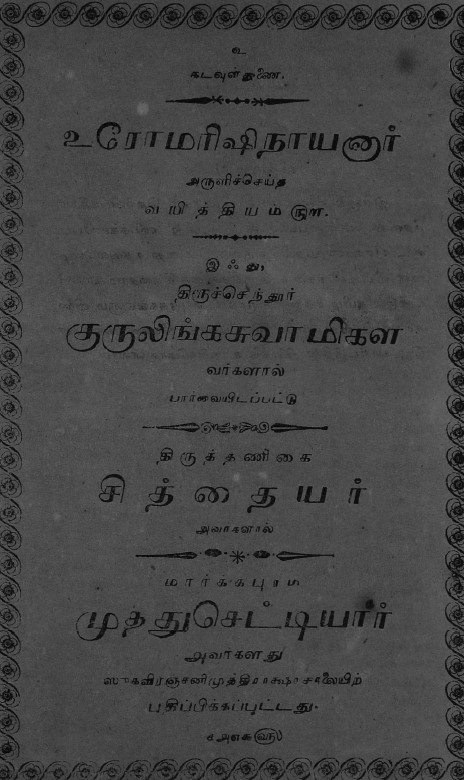 உ
கடவுள்துணை.
உரோமரிஷிநாயனார்
அருளிச்செய்த
வயித்தியம் ௫௱.
இஃது,
திருச்செந்தூர்
குருலிங்கசுவாமிகள
வர்களால்
பார்வையிடப்பட்டு
திருத்தணிகை
சித்தையர்
அவர்களால்
மார்க்கபுரம்
முத்துசெட்டியார்
அவர்களது
ஸுகவிரஞ்சனிமுத்திராக்ஷரசாலையிற்
பதிப்பிக்கப்பட்டது.